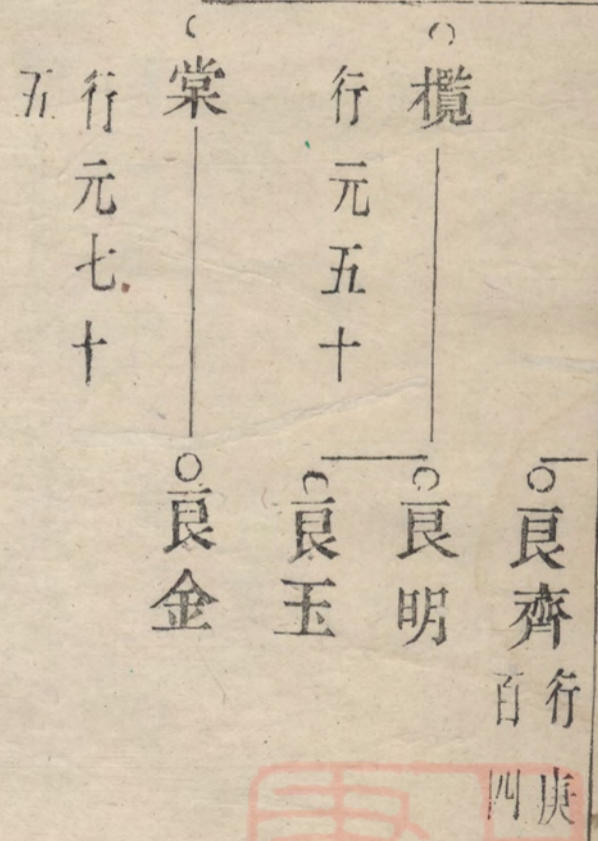 良齊
行庚
百四
欖
行元五十
良明
良玉
棠
行元七十
五
良金